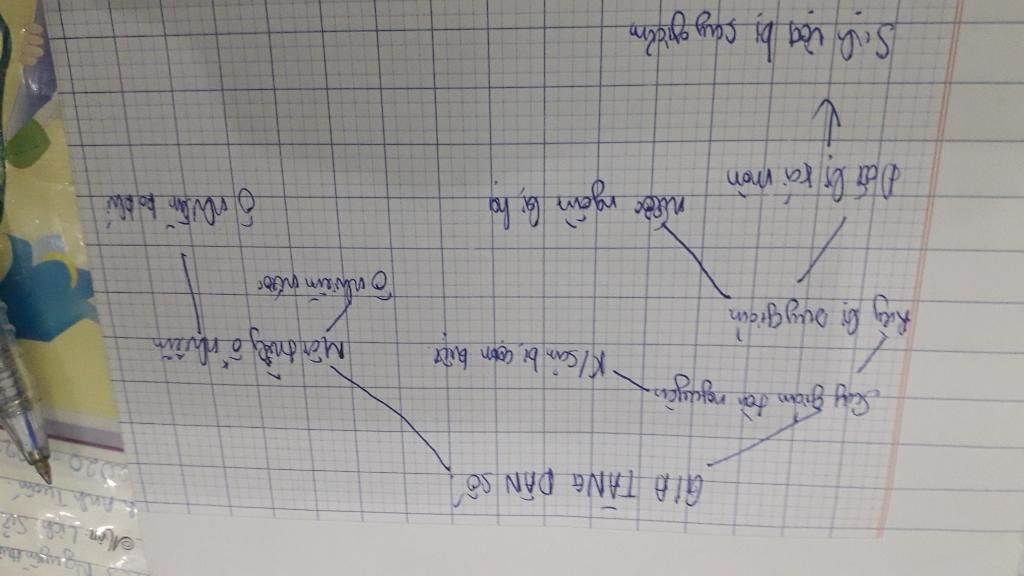 GIA TĂNG DÂN SỐ
Suy giảm tài nguyên
K/sản bị cạn kiệt
Môi trường ô nhiễm
Rừng bị suy giảm
Ô nhiễm nước
Đất bị xói mòn
nước ngầm bị hạ
Ô nhiễm ko khí
Sinh vật bị suy giảm
Nguyễn
Môn Lịch Sử
Anh Tuấn
2020